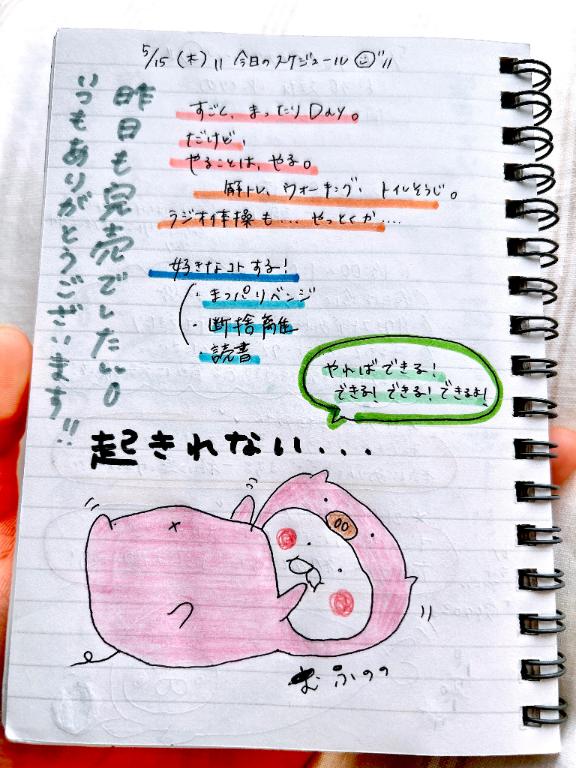 5/15 (木) 今日のスケジュール
すごく、まったりDay。
だけど、
やることは、やる。
筋トレ、ウォーキング、トイレそうじ。
ラジオ体操も…やっとくか…
好きなコトする!
・まつパリベンジ
・断捨離
・読書
昨日も完売でしたい。
いつもありがとうございます!!
やればできる!
できる!できる!できるよ!
起きれない...
むふのの